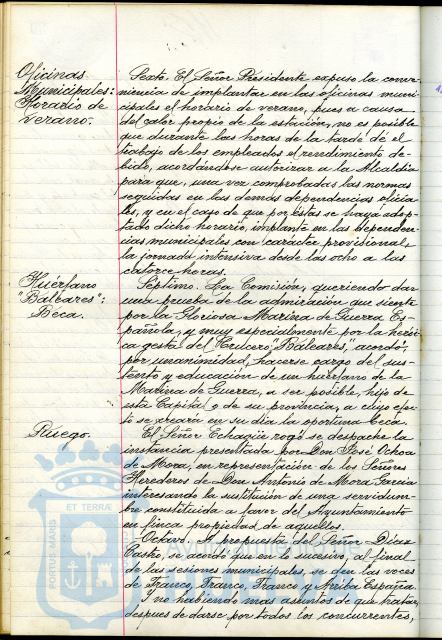 Oficinas
Municipales:
Horario de
Verano.
Sexto. El Señor Presidente expuso la conve-
niencia de implantar en las oficinas muni-
cipales el horario de verano, pues a causa
del calor propio de la estación, no es posible
que durante las horas de la tarde dé el
trabajo de los empleados el rendimiento de-
bido, acordándose autorizar a la Alcaldía
para que, una vez comprobadas las normas
seguidas en las demás dependencias oficia-
les, y en el caso de que por éstas se haya adop-
tado dicho horario, implante en las dependen-
cias municipales con carácter provisional,
la jornada intensiva desde las ocho a las
catorce horas.
Huérfano
"Baleares":
Beca.
Séptimo. La Comisión, queriendo dar
una prueba de la admiración que siente
por la Gloriosa Marina de Guerra Es-
pañola, y muy especialmente por la herói-
ca gesta del Crucero "Baleares", acordó,
por unanimidad, hacerse cargo del sus-
tento y educación de un huérfano de la
Marina de Guerra, a ser posible, hijo de
esta Capital y de su provincia, a cuyo efec-
to se creará en su día la oportuna beca.
Ruego.
El Señor Echagüe rogó se despache la
instancia presentada por Don José Ochoa
de Mora, en representación de los Señores
Herederos de Don Antonio de Mora García
interesando la sustitución de una servidum-
bre constituida a favor del Ayuntamiento
en finca propiedad de aquellos.
Octavo. A propuesta del Señor Díaz
Castro, se acordó que en lo sucesivo, al final
de las sesiones municipales, se den las voces
de Franco, Franco, Franco y Arriba España.
Y no habiendo mas asuntos de que tratar,
despues de darse por todos los concurrentes,
PORTUS MARIS
ET TERRÆ